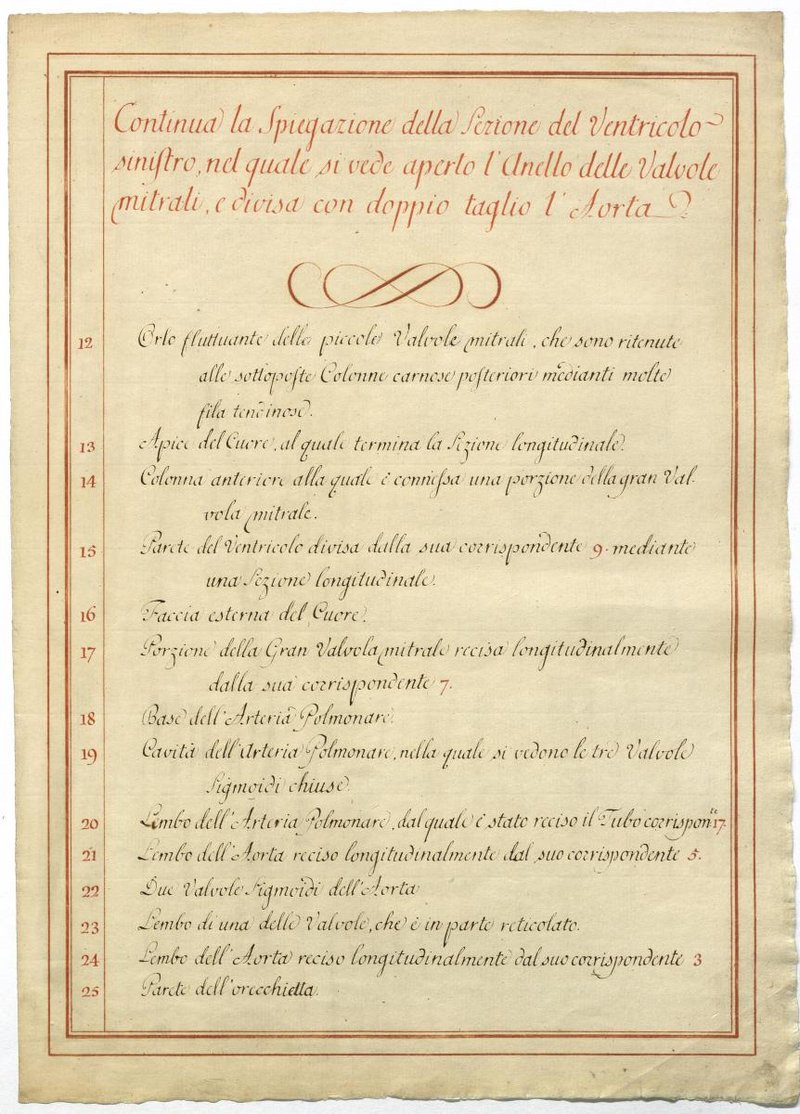 Continua la Spiegazione della Sezione del Ventricolo
sinistro, nel quale si vede aperto l'Anello delle Valvole
mitrali, e divisa con doppio taglio l'Aorta
12 Orlo fluttuante delle piccole Valvole mitrali, che sono ritenute
alle sottoposte Colonne carnose posteriori medianti molte
fila tendinose.
13 Apice del Cuore, al quale termina la Sezione longitudinale.
14 Colonna anteriore alla quale è connessa una porzione della gran Val-
vola mitrale.
15 Parete del Ventricolo divisa dalla sua corrispondente 9. mediante
una Sezione longitudinale.
16 Faccia esterna del Cuore.
17 Porzione della Gran Valvola mitrale recisa longitudinalmente
dalla sua corrispondente 7.
18 Base dell'Arteria Polmonare.
19 Cavità dell'Arteria Polmonare, nella quale si vedono le tre Valvole
Sigmoidi chiuse.
20 Lembo dell'Arteria Polmonare, dal quale è stato reciso il Tubo corrispon.te 17.
21 Lembo dell'Aorta reciso longitudinalmente dal suo corrispondente 5.
22 Due Valvole Sigmoidi dell'Aorta
23 Lembo di una delle Valvole, che è in parte reticolato.
24 Lembo dell'Aorta reciso longitudinalmente dal suo corrispondente 3
25 Parete dell'orecchietta.